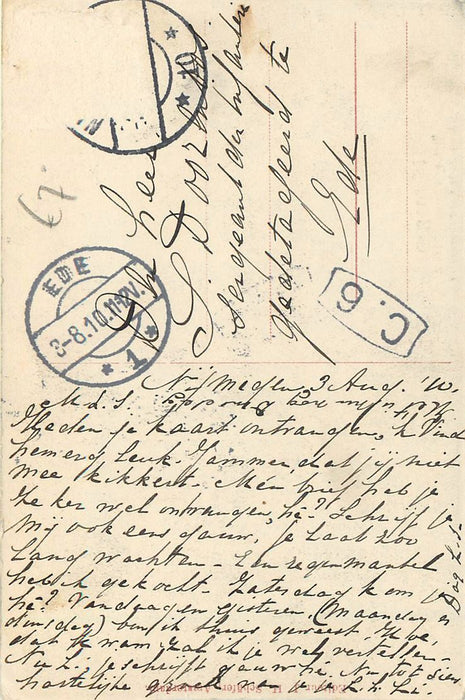 Den Heer
S. Doornbos
Sergeant der Infanterie
gedetacheerd te
Ede
EDE
3-8.10.11-12V.
1
10
N
C. 6
67
Nijmegen, 3 Aug. '10.
M. L. S.
Heden je kaart ontvangen, k vind
hem erg leuk. Jammer, dat jij niet
mee kikkert. Mén brief heb je
zeker wel ontvangen, hè? Schrijf je
mij ook eens gauw, je laat zoo
lang wachten - Een regenmantel
heb ik gekocht. Zaterdag kom je
hè? Vandaag en gisteren (Maandag en
dinsdag) ben ik thuis geweest. Hoe
dat kwam, zal ik je wel vertellen -
Nu L., je schrijft gauw hè. Nu tot ziens
hartelijke groet van je
Dag L. S.